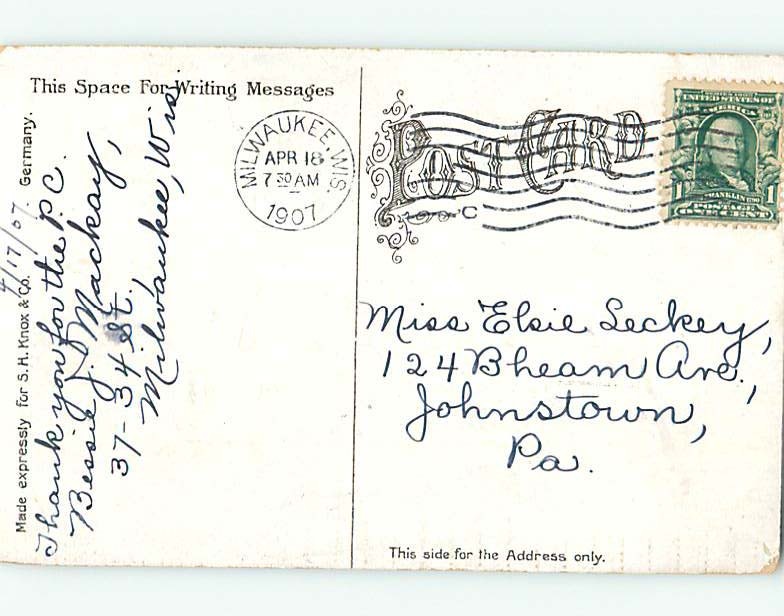 This Space For Writing Messages
Made expressly for S. H. Knox & Co. Germany.
4/17/07
Thank you for the P.C.
Bessie J. Mackay,
37-34 St.
Milwaukee, Wis.
MILWAUKEE, WIS.
APR 18
7 30 AM
1907
POST CARD
C
UNITED STATES OF
AMERICA
1
FRANKLIN
POSTAGE
ONE CENT
Miss Elsie Leckey,
124 Bheam Ave.,
Johnstown,
Pa.
This side for the Address only.